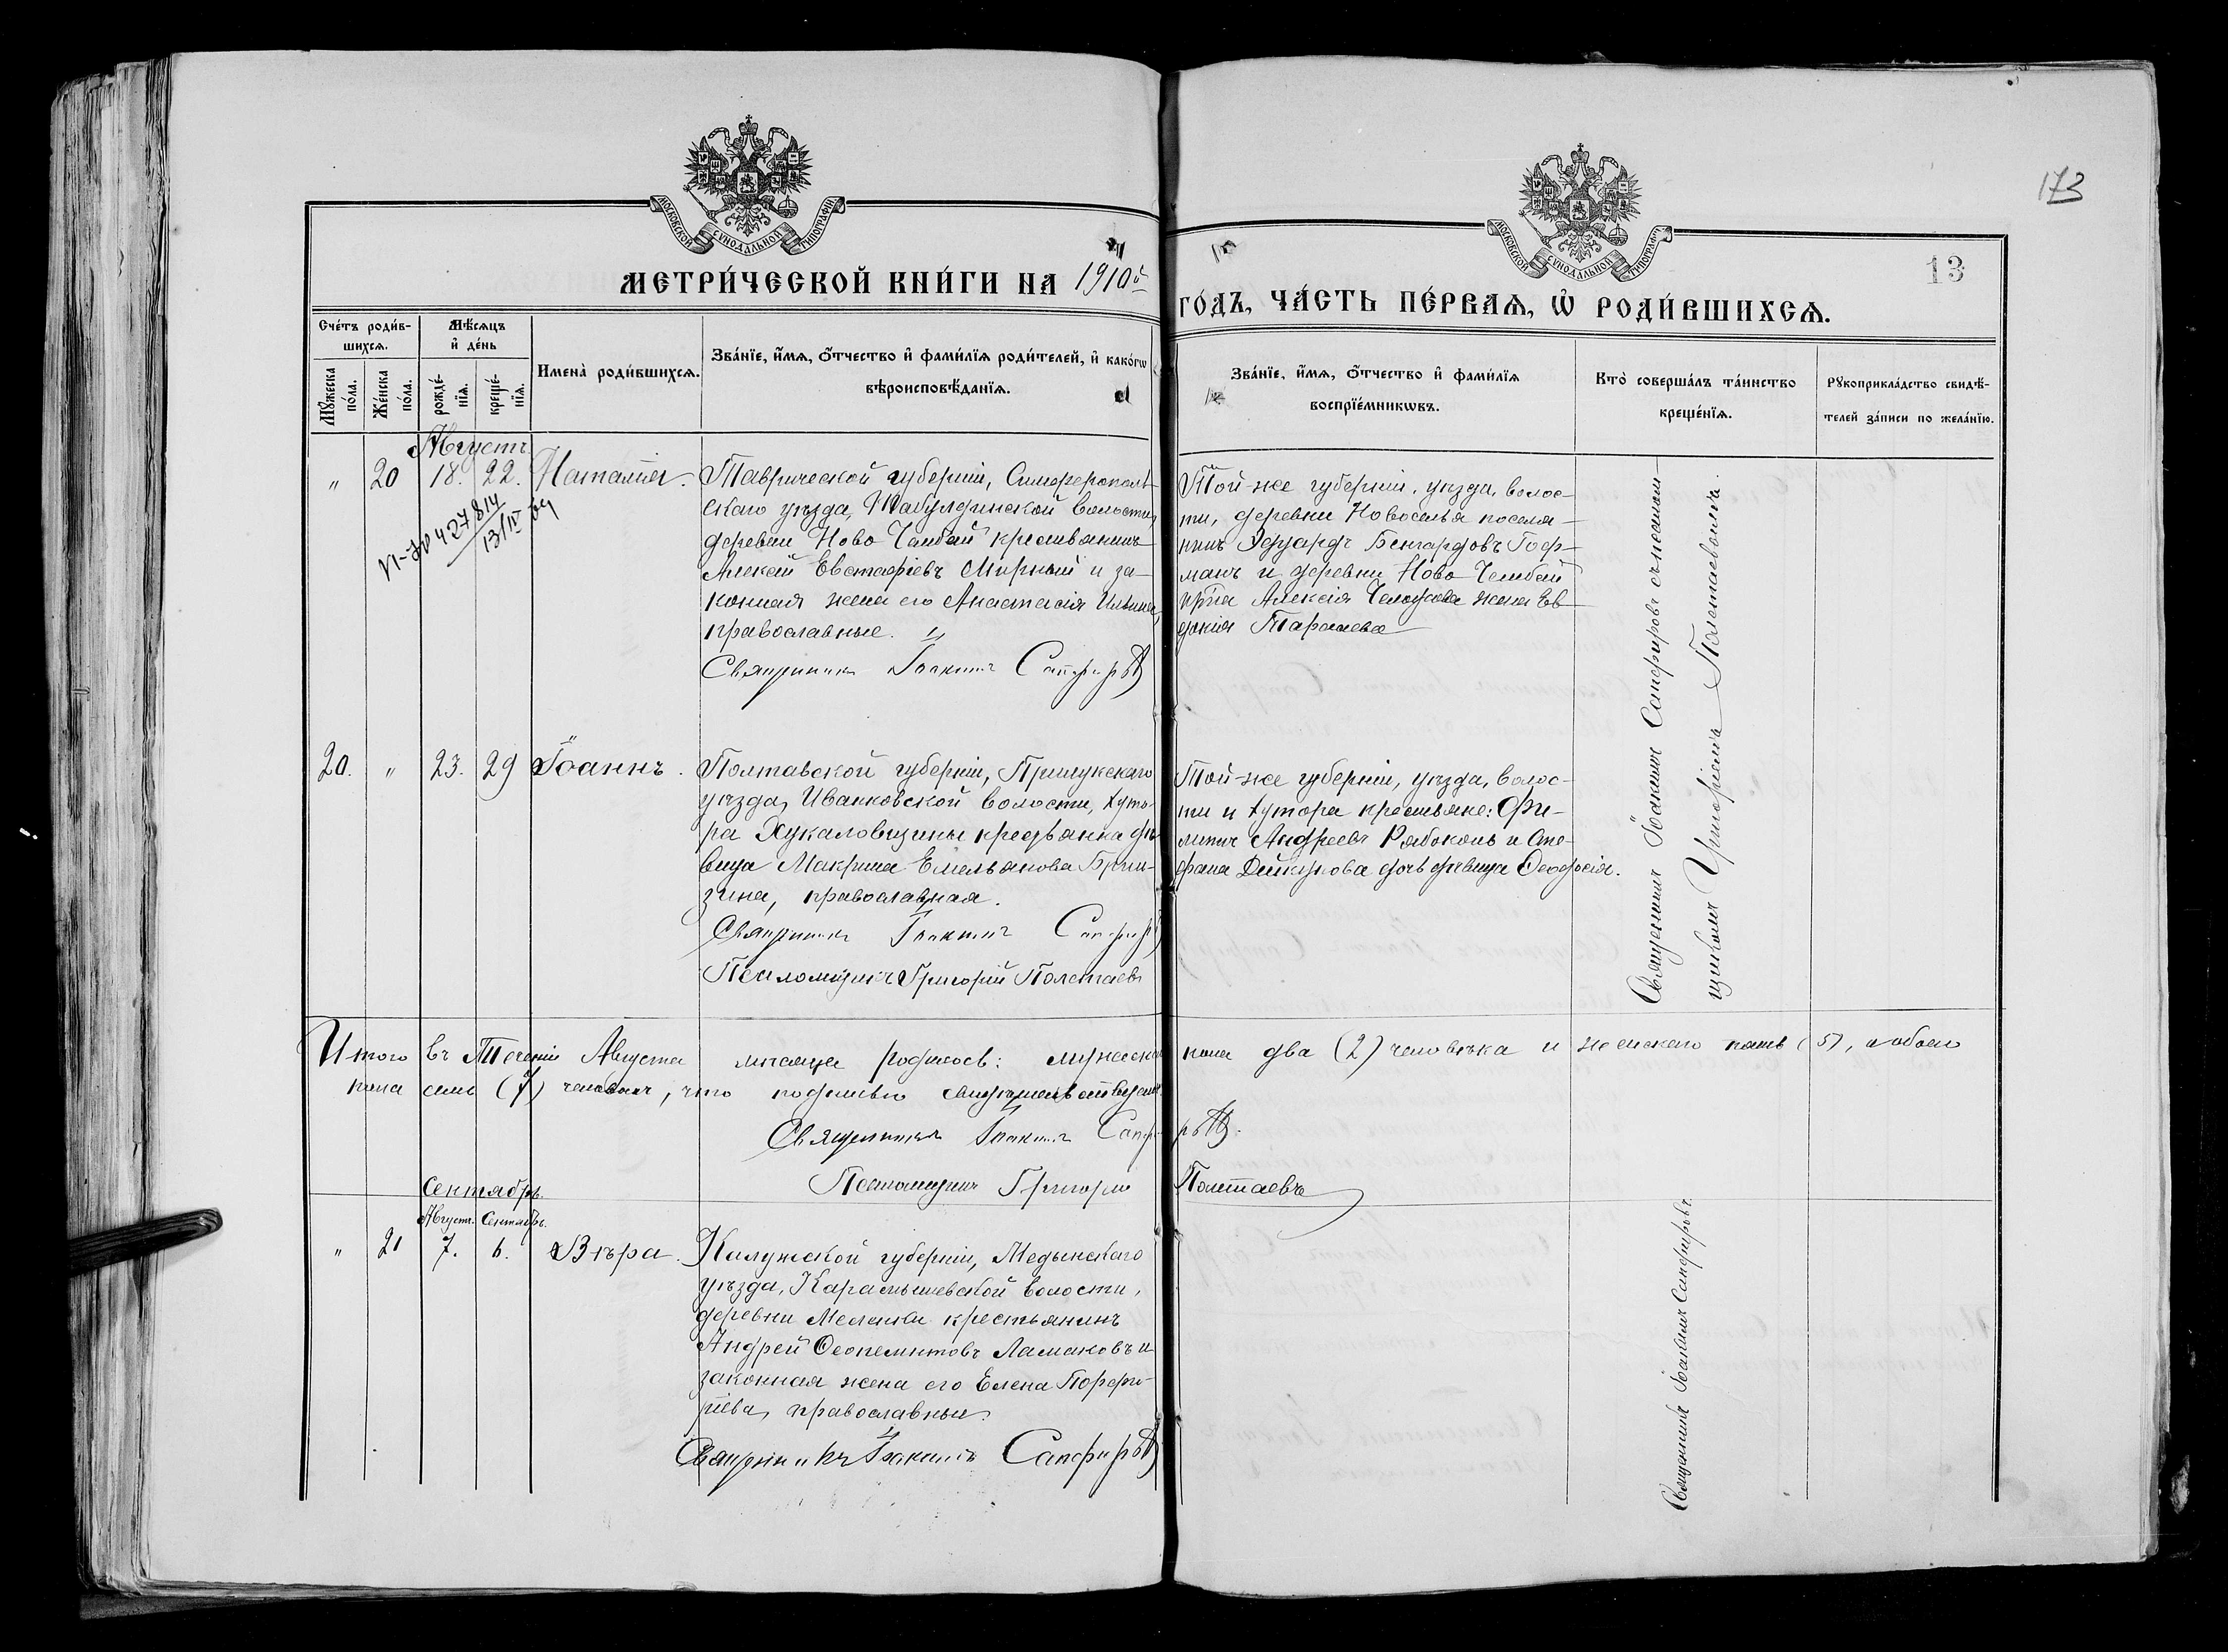 173
13
МОСКОВСКОЙ СѴНОДАЛЬНОЙ ТИПОГРАФІИ
МОСКОВСКОЙ СѴНОДАЛЬНОЙ ТИПОГРАФІИ
МЕТРИ́ЧЕСКОЙ КНИ́ГИ НА 1910й
ГО́ДЪ, ЧА́СТЬ ПЕ́РВАѦ, Ѽ РОДИ́ВШИХСѦ.
Сче́тъ роди́в-
шихсѧ.
Мѣ́сѧцъ
и҆ де́нь
Мꙋ́жеска
по́ла.
Же́нска
по́ла.
рожде́-
нїѧ.
креще́-
нїѧ.
Имена̀ роди́вшихсѧ.
Зва́нїе, и҆́мѧ, ѻ҆́тчество и҆ фами́лїѧ роди́телей, и҆ како́гѡ
вѣроисповѣ́данїѧ.
Зва́нїе, и҆́мѧ, ѻ҆́тчество и҆ фами́лїѧ
воспрїе́мникѡвъ.
Кто̀ соверша́лъ та́инство
креще́нїѧ.
Рꙋкоприкла́дство свидѣ́-
телей за́писи по жела́нїю.
Августъ
" 20 18. 22. Наталія.
13/IV 69
Таврической губерніи, Симферополь-
скаго уѣзда, Табулдинской волости,
деревни Ново Челебай крестьянинъ
Алексѣй Евстафіевъ Мирный и за-
конная жена его Анастасія Ильина,
православные.
Священникъ Іоакимъ Сапфировъ
Той-же губерніи, уѣзда, волос-
ти, деревни Новоселья поселя-
нинъ Эдуардъ Бенгардовъ Гоф-
манъ и деревни Ново Челебай
кр-на Алексія жена Ев-
докія Тарасиева
Священникъ Іоакимъ Сапфировъ съ псалом-
щикомъ Григоріемъ Полетаевымъ.
20. " 23. 29 Іоаннъ.
Полтавской губерніи, Прилукскаго
уѣзда, Иванковской волости, хуто-
ра Жукаловщины крестьянка дѣ-
вица Макрина Емельянова
православная.
Священникъ Іоакимъ Сапфировъ
Псаломщикъ Григорій Полетаевъ
Той-же губерніи, уѣзда, волос-
ти и хутора крестьяне: Фи-
липпъ Андреевъ Рябоконь и Сте-
фана дочь дѣвица Ѳеодосія.
Итого въ теченіи Августа мѣсяца родилось: мужеска пола два (2) человѣка и женскаго пять (5), а обоего
пола семь (7) человѣкъ, что подписью свидѣтельствуемъ.
Священникъ Іоакимъ Сапфировъ.
Псаломщикъ Григорій Полетаевъ
Сентябрь.
Августъ. Сентябрь.
" 21 7. 6. Вѣра.
Калужской губерніи, Медынскаго
уѣзда, Карамышевской волости,
деревни Меленки крестьянинъ
Андрей Ѳеопемптовъ Ламановъ и
законная жена его Елена Порфи-
ріева, православные.
Священникъ Іоакимъ Сапфировъ
Священникъ Іоакимъ Сапфировъ.